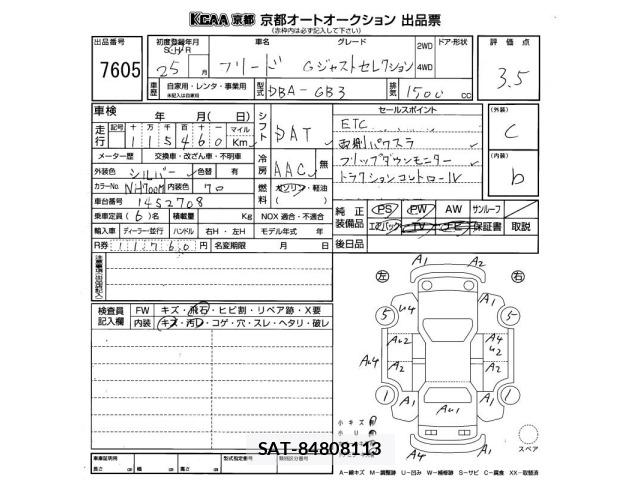 KCAA 京都 京都オートオークション 出品票
(赤枠内は必ず記入して下さい)
出品番号
7605
初度登録年月
S・H・R
25 月
車名
フリード
グレード
Gジャストセレクション
2WD
4WD
ドア・形状
評価点
3.5
車歴
自家用・レンタ・事業用
未記入は自家用
型式
DBA-GB3
排気
1500 cc
車検 年 月(日)
シフト
DAT
走行
記号 十 万 千 百 十 一 マイル
115460 Km
メーター歴 交換車・改ざん車・不明車
外装色 シルバー 色替 有
冷房
AAC 無
カラーNo. NH700M 内装色 70
燃料
ガソリン・軽油
( )
車台番号 1452708
乗車定員 (6)名 積載量 Kg NOX 適合・不適合
輸入車 ディーラー・並行 ハンドル 右H・左H モデル年式 年
R券 11760 円 名変期限 月 日
セールスポイント
ETC
両側パワスラ
フリップダウンモニター
トラクションコントロール
(外装)
C
(内装)
b
純正装備品
PS PW AW サンルーフ
エアバック TV ナビ 保証書 取説
後日品
注意事項(出品店記入)
検査員記入欄
FW キズ・飛石・ヒビ割・リペア跡・X要
内装 キズ・汚レ・コゲ・穴・スレ・ヘタリ・破レ
左 右
A1 A2
5 5
U4 A1
AU2 A4
U2
AU4 A4
A2 A2
1 1
A1 AU1 A1
A1 A2
小キズ
スペア
SAT-84808113
車庫証明用
長さ cm 幅 cm 高さ cm
型式指定番号
類別区分番号
A－線キズ M－調整跡 U－凹み W－補修跡 S－サビ C－腐食 XX－取替済